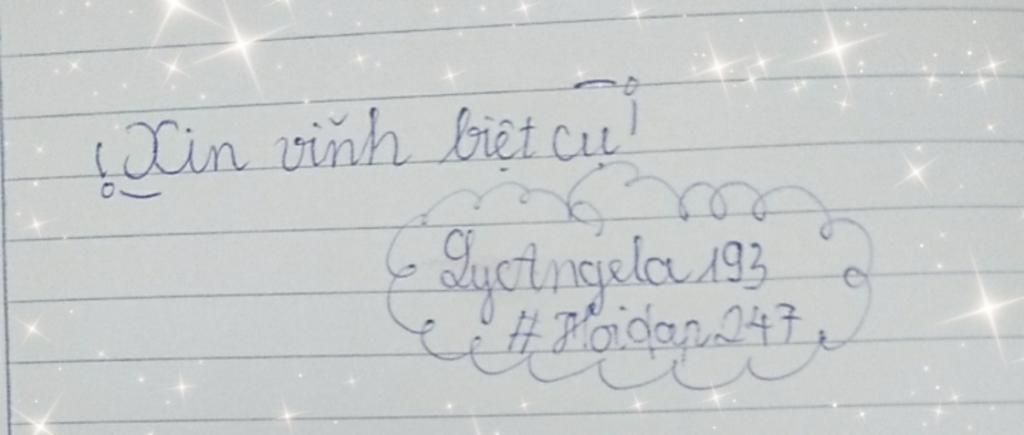 Xin vĩnh biệt cụ!
LyAngela193
#Hoidap247